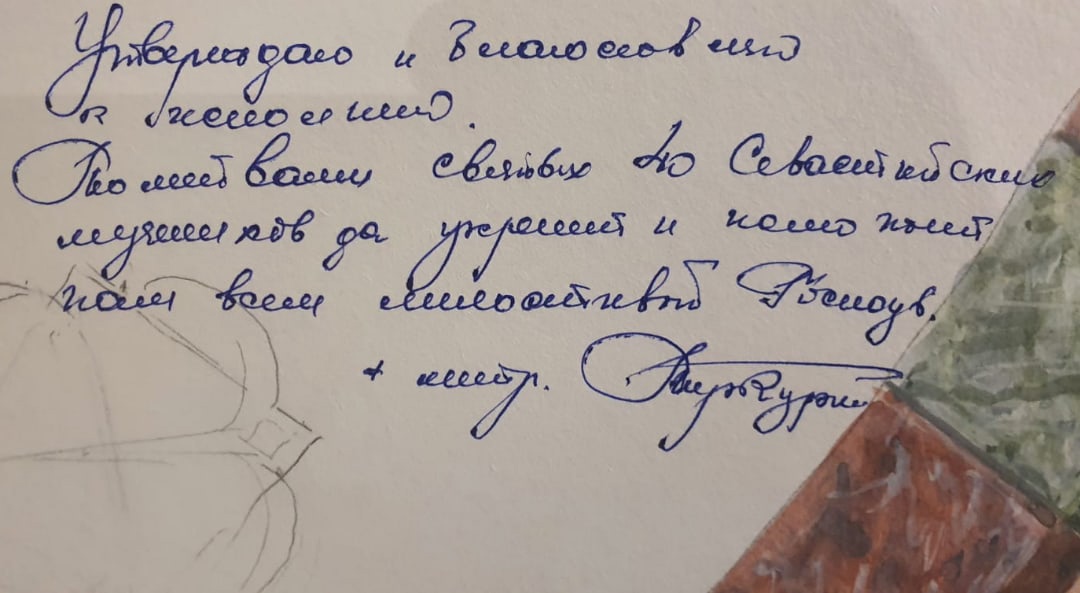 Утверждаю и благословляю
к исполнению.
Молитвами святых 40 Севастийских
мучеников да укрепит и поможет
нам всем милостивый Господь.
+ митр.